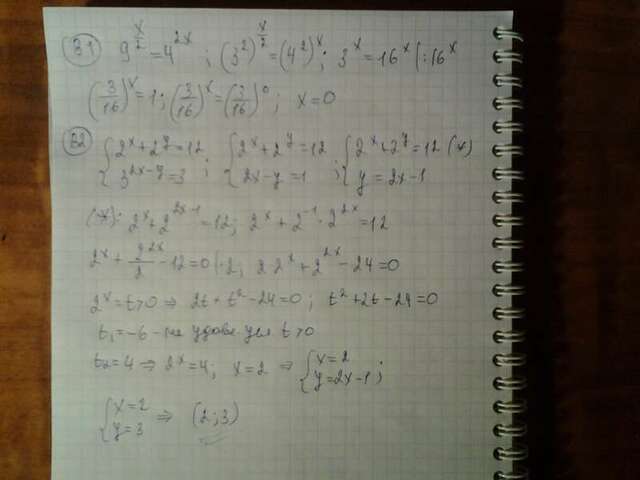 31 9^{x/2} = 4^{2x} ; (3^2)^{x/2} = (4^2)^x ; 3^x = 16^x |: 16^x
(3/16)^x = 1 ; (3/16)^x = (3/16)^0 ; x = 0
32 { 2^x + 2^y = 12 ; { 2^x + 2^y = 12 ; { 2^x + 2^y = 12 (*)
{ 3^{2x-y} = 3 { 2x - y = 1 { y = 2x - 1
(*): 2^x + 2^{2x-1} = 12 ; 2^x + 2^{-1} · 2^{2x} = 12
2^x + 2^{2x}/2 - 12 = 0 |·2 ; 2·2^x + 2^{2x} - 24 = 0
2^x = t > 0 ⇒ 2t + t^2 - 24 = 0 ; t^2 + 2t - 24 = 0
t_1 = -6 - не удовл усл t > 0
t_2 = 4 ⇒ 2^x = 4 ; x = 2 ⇒ { x = 2
{ y = 2x - 1 ;
{ x = 2 ⇒ (2 ; 3)
{ y = 3